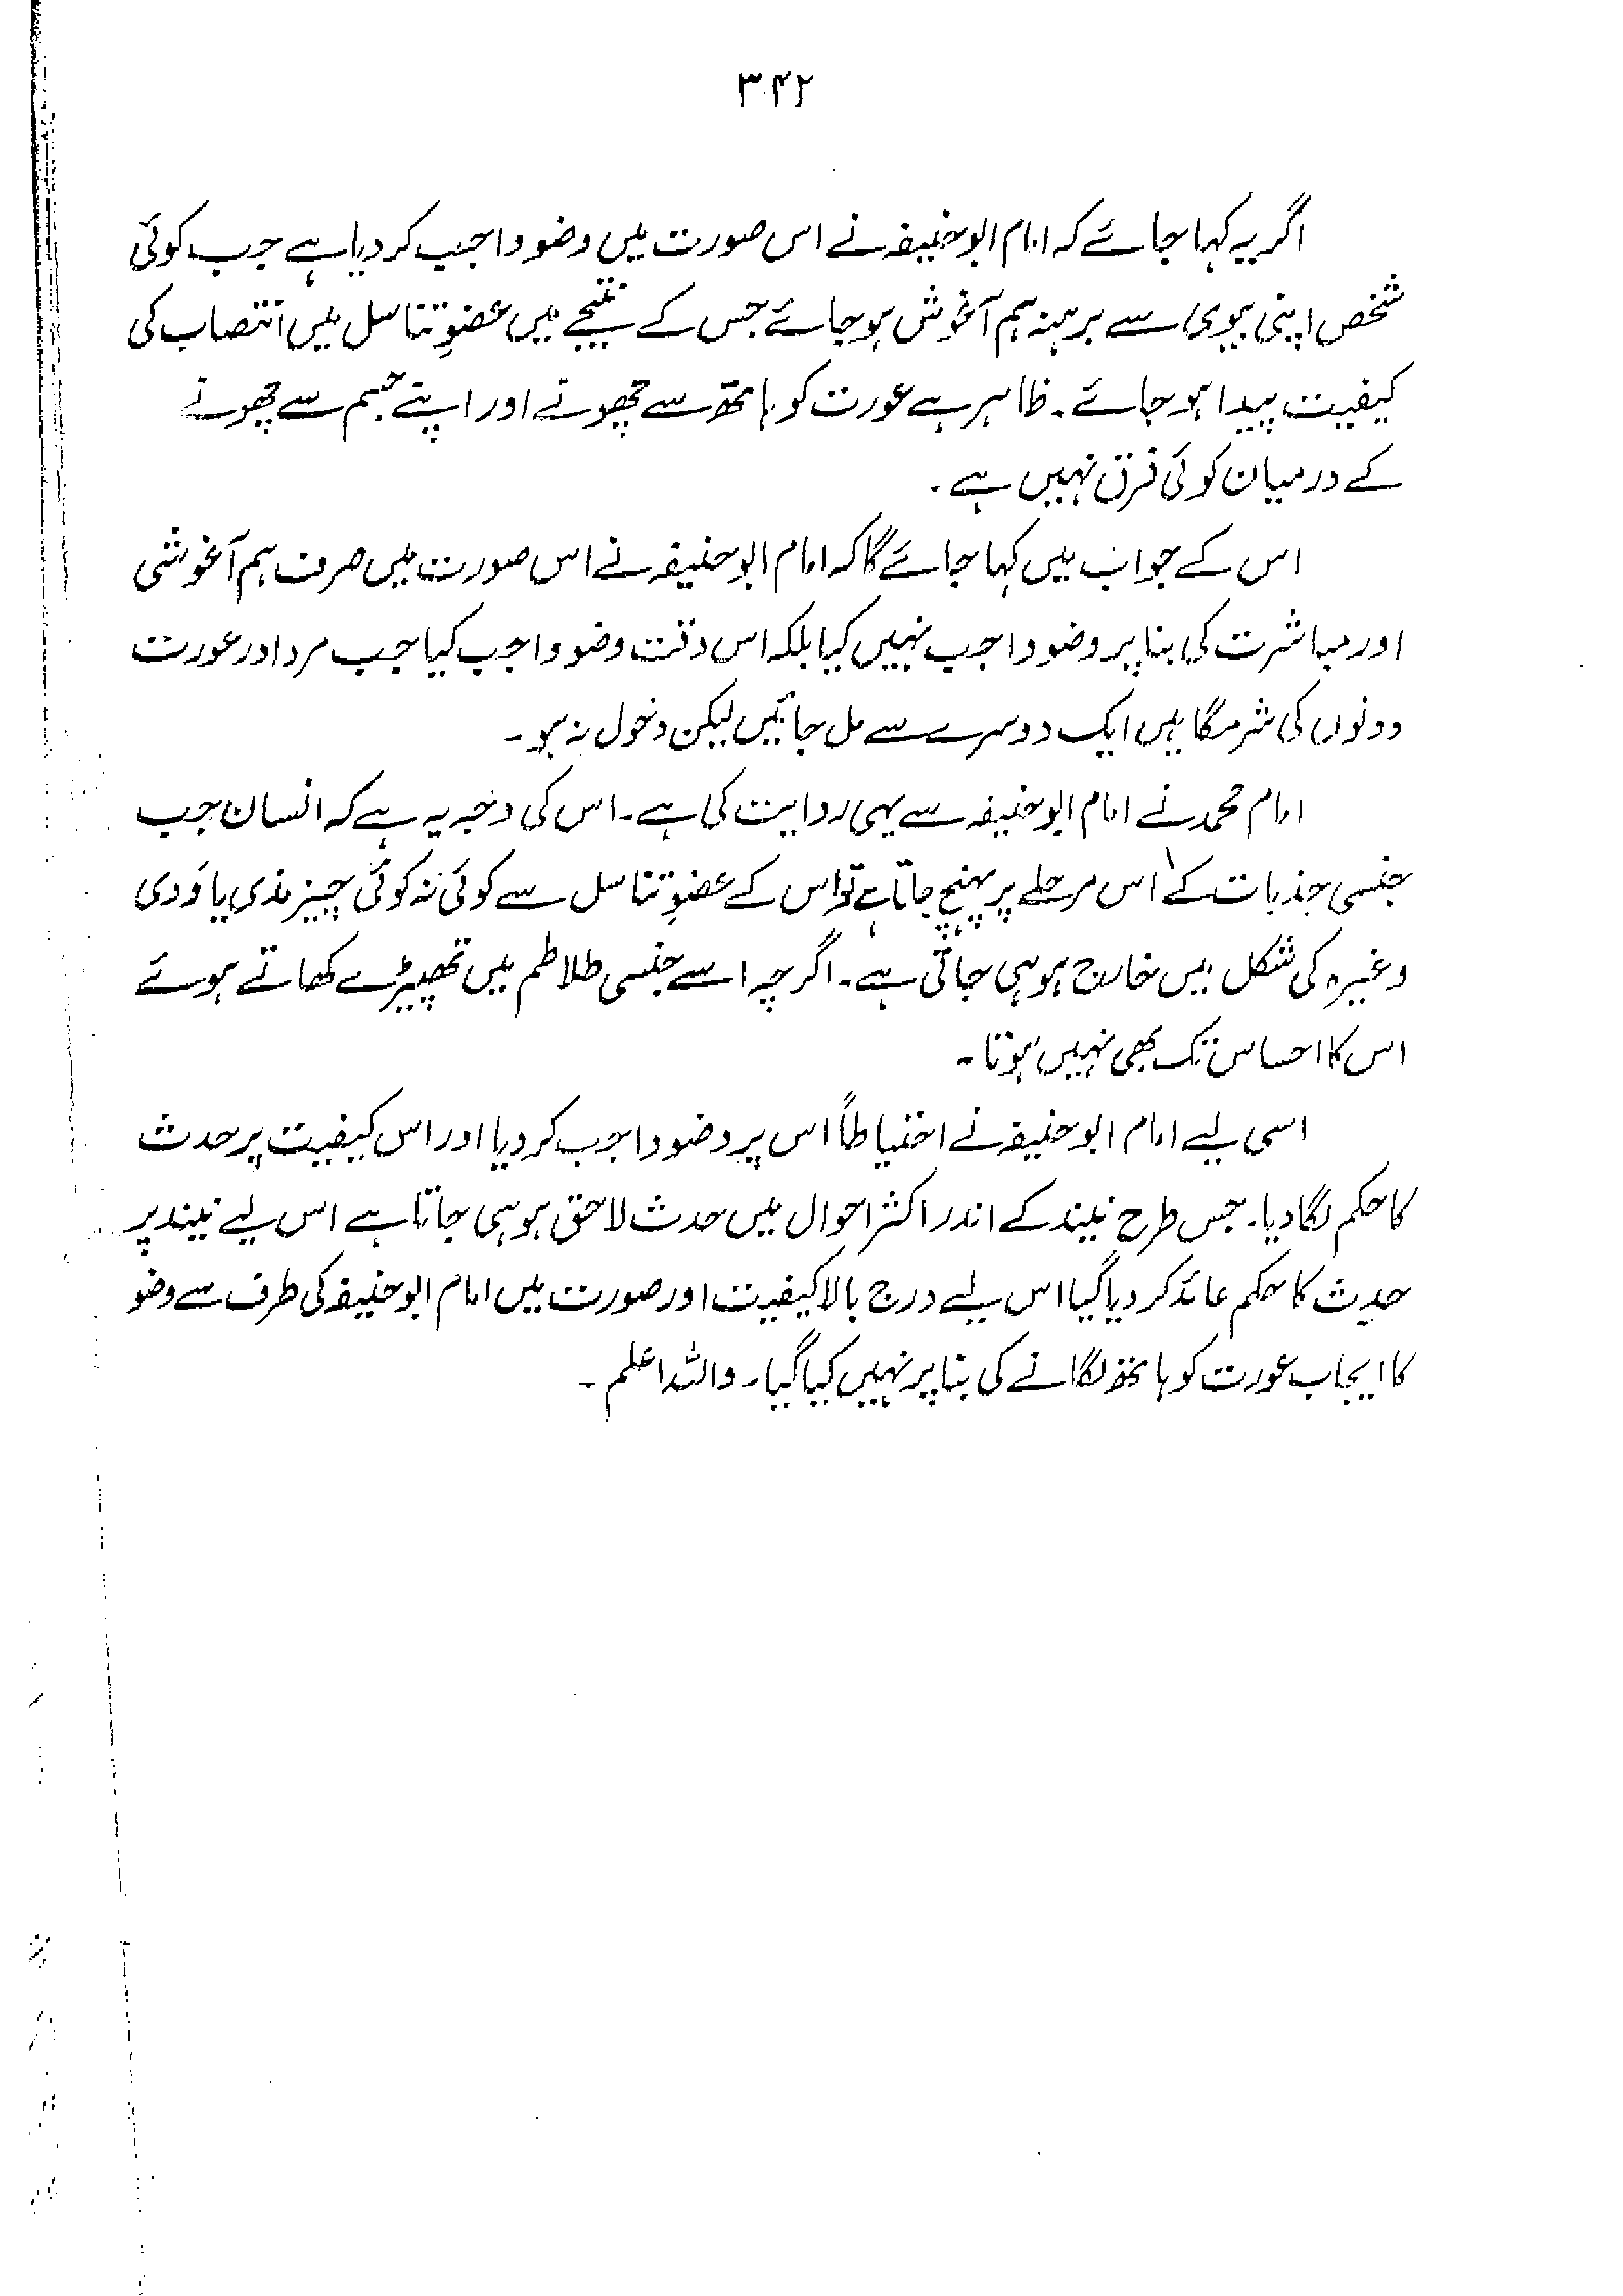 ۳۴۲
اگر یہ کہا جائے کہ امام ابوحنیفہ نے اس صورت میں وضو واجب کر دیا ہے جب کوئی
شخص اپنی بیوی سے برہنہ ہم آغوش ہو جائے جس کے نتیجے میں عضوِ تناسل میں انتصاب کی
کیفیت پیدا ہو جائے۔ ظاہر ہے عورت کو ہاتھ سے چھونے اور اپنے جسم سے چھونے
کے درمیان کوئی فرق نہیں ہے۔
اس کے جواب میں کہا جائے گا کہ امام ابوحنیفہ نے اس صورت میں صرف ہم آغوشی
اور مباشرت کی بنا پر وضو واجب نہیں کیا بلکہ اس وقت وضو واجب کیا جب مرد اور عورت
دونوں کی شرمگاہیں ایک دوسرے سے مل جائیں لیکن دخول نہ ہو۔
امام محمد نے امام ابوحنیفہ سے یہی روایت کی ہے۔ اس کی وجہ یہ ہے کہ انسان جب
جنسی جذبات کے اس مرحلے پر پہنچ جاتا ہے تو اس کے عضوِ تناسل سے کوئی نہ کوئی چیز مذی یا وَدی
وغیرہ کی شکل میں خارج ہو ہی جاتی ہے۔ اگرچہ اسے جنسی طلاطم میں تھپیڑے کھاتے ہوئے
اس کا احساس تک بھی نہیں ہوتا۔
اسی لیے امام ابوحنیفہ نے احتیاطاً اس پر وضو واجب کر دیا اور اس کیفیت پر حدث
کا حکم لگا دیا۔ جس طرح نیند کے اندر اکثر احوال میں حدث لاحق ہو ہی جاتا ہے اس لیے نیند پر
حدث کا حکم عائد کر دیا گیا اس لیے درج بالا کیفیت اور صورت میں امام ابوحنیفہ کی طرف سے وضو
کا ایجاب عورت کو ہاتھ لگانے کی بنا پر نہیں کیا گیا۔ واللہ اعلم۔